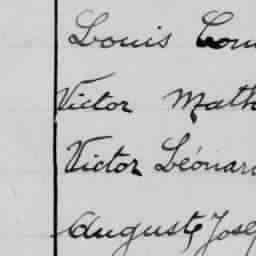 Louis Com
Victor Math
Victor Léonar
Auguste Jose